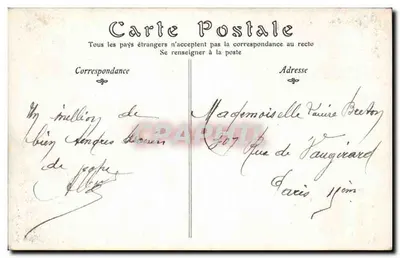 Carte Postale
Tous les pays étrangers n'acceptent pas la correspondance au recto
Se renseigner à la poste
Correspondance
Adresse
Un million de
bien tendres
de
Mademoiselle Breton
207 Rue de Vaugirard
Paris